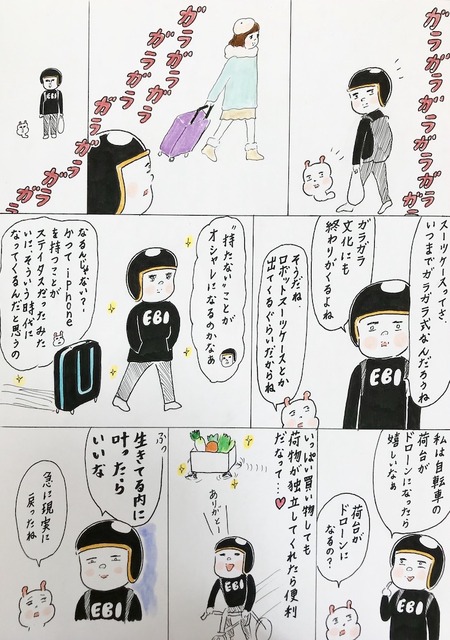 ガラガラガラガラガラ
ガラガラガラガラ
ガラガラガラ
ガラガラ
スーツケースってさ、
いつまでガラガラ式なんだろうね
ガラガラ
文化にも
終わりがくるよね
そうだね、
ロボットスーツケースとか
出てくるぐらいだからね
EBI
“持たない”ことが
オシャレになるのかなぁ
EBI
なるんじゃない?
かつてiPhone
を持つことが
ステイタスだったみた
いに、そういう時代に
なってくると思うの
私は自転車の
荷台が
ドローンになったら
嬉しいなぁ
荷台が
ドローンに
なるの?
EBI
いっぱい買い物しても
荷物が独立してくれたら便利
だなって…♥
ありがとー
EBI
ぷっ
生きてる内に
叶ったら
いいな
急に現実に
戻ったね
EBI